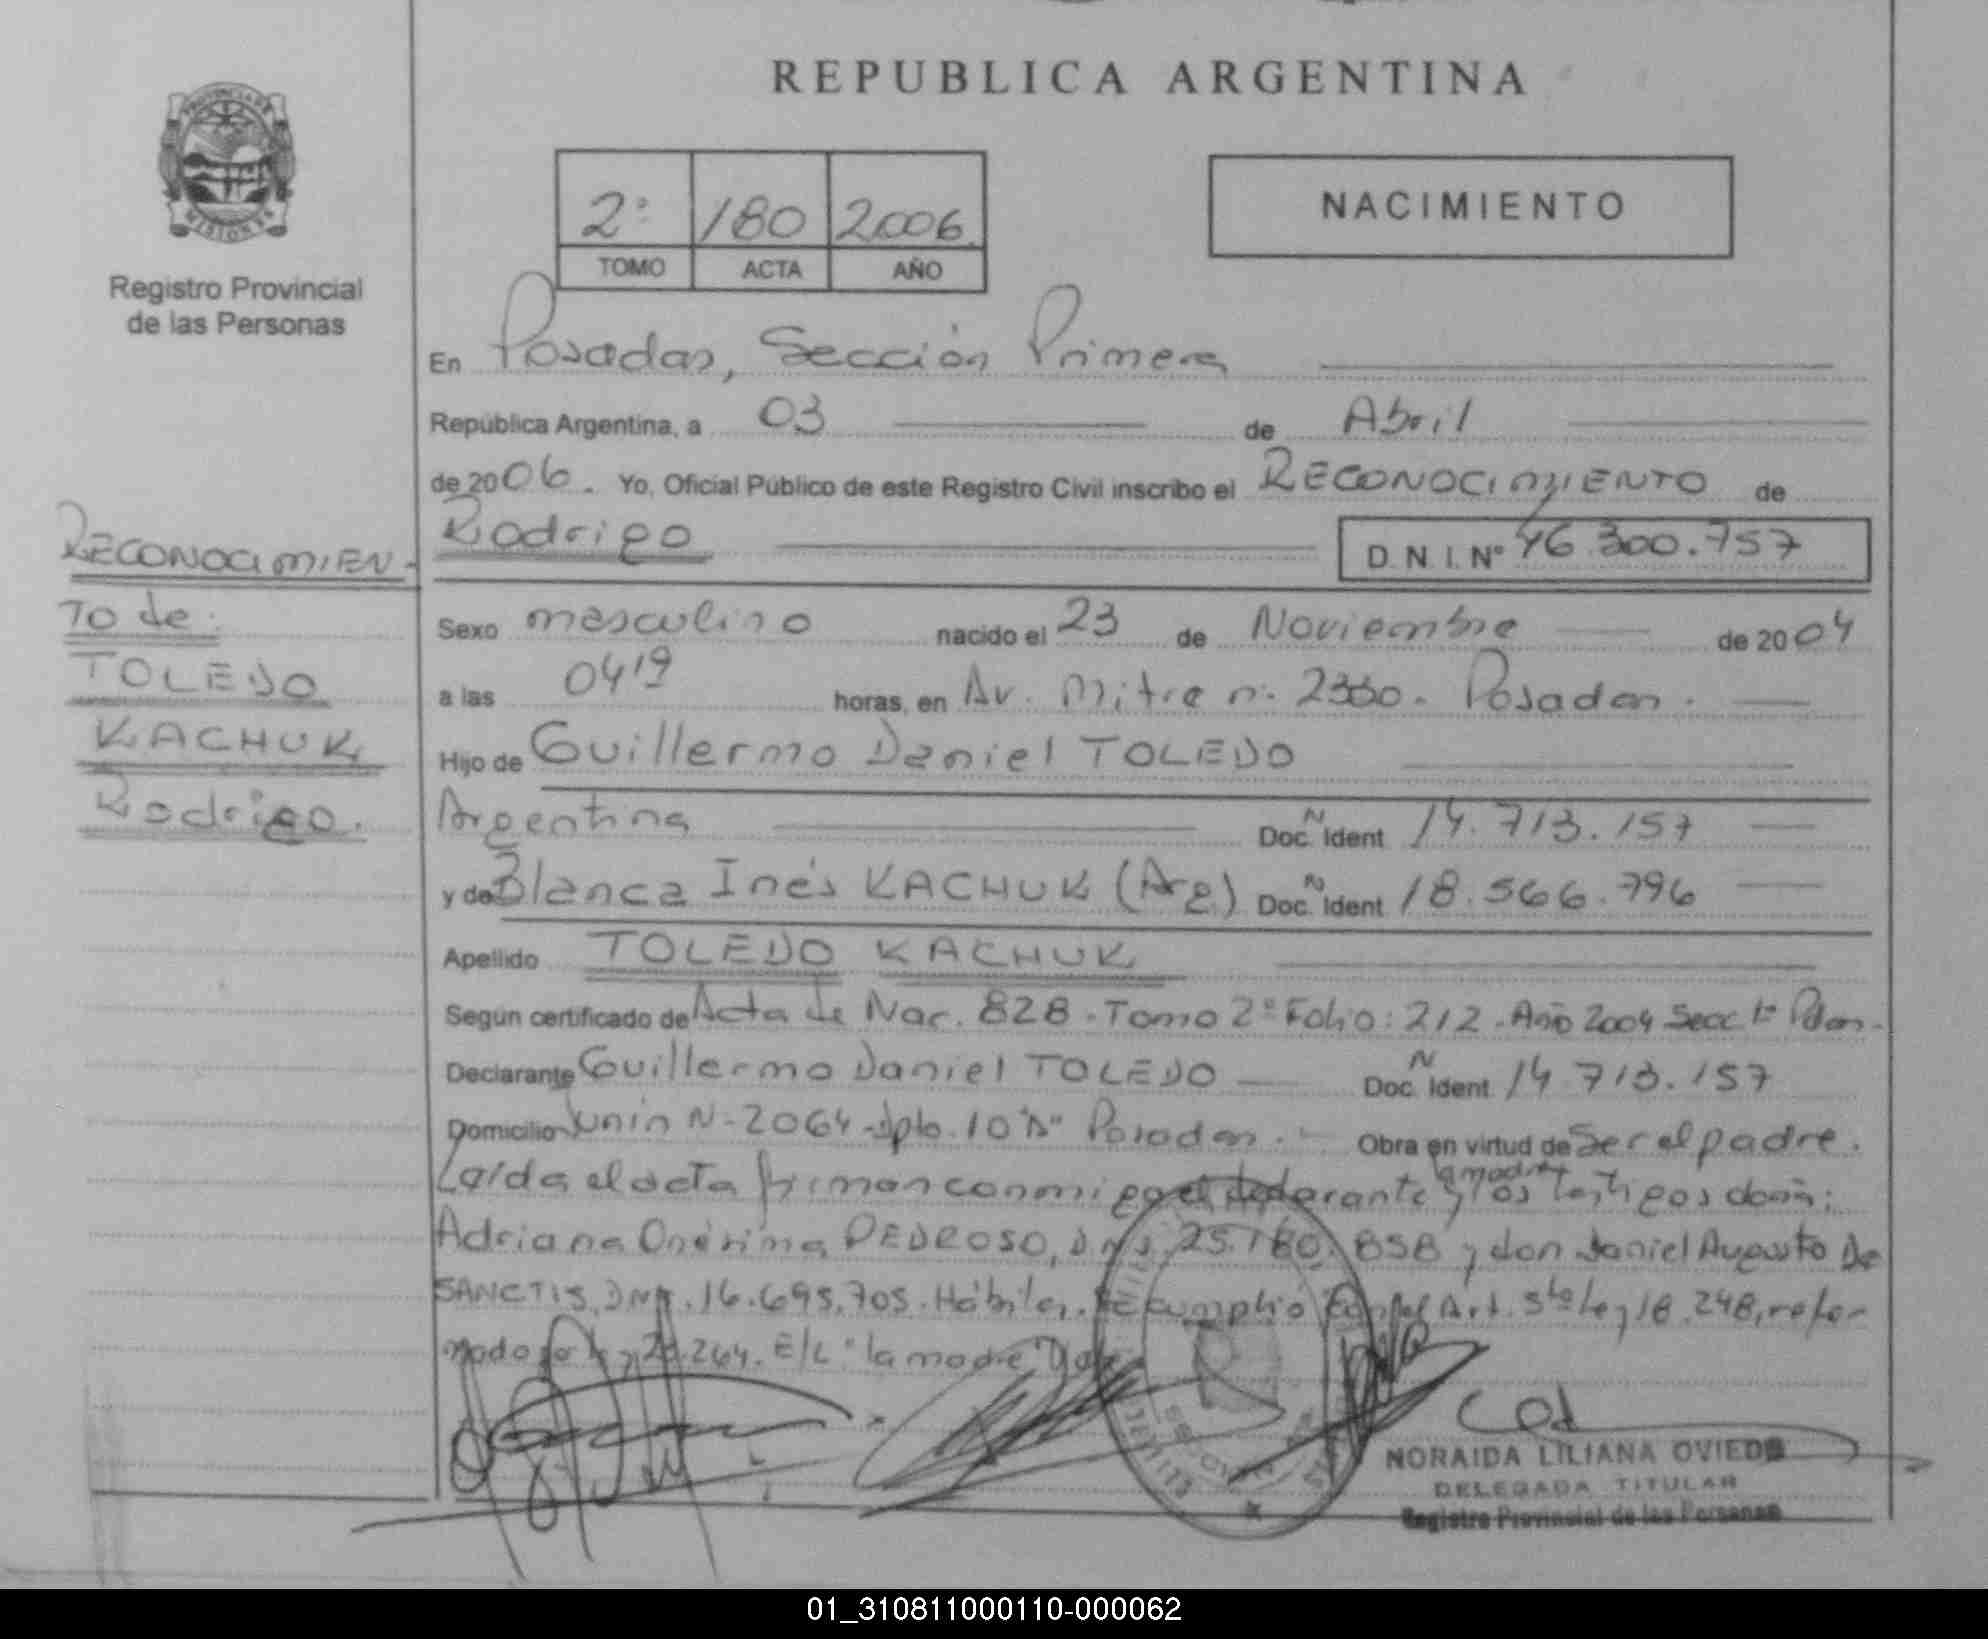 REPUBLICA ARGENTINA
PROVINCIA DE
MISIONES
Registro Provincial
de las Personas
2º 180 2006
TOMO ACTA AÑO
NACIMIENTO
En Posadas, Sección Primera
República Argentina, a 03 de Abril
de 2006. Yo, Oficial Público de este Registro Civil inscribo el RECONOCIMIENTO de
Rodrigo D. N. I. Nº 46.300.757
RECONOCIMIEN-
TO de:
TOLEDO
KACHUK
Rodrigo.
Sexo masculino nacido el 23 de Noviembre de 2004
a las 04 19 horas, en Av. Mitre n: 2350. Posadas.
Hijo de Guillermo Daniel TOLEDO
Argentina Doc. N Ident 14.713.157
y de Blanca Inés KACHUK (Arg) Doc. N Ident 18.566.796
Apellido TOLEDO KACHUK
Según certificado de Acta de Nac. 828. Tomo 2º Folio: 212. Año 2004 Secc 1º Pdas.
Declarante Guillermo Daniel TOLEDO Doc. N Ident 14.713.157
Domicilio Junín N-2064-Dpto. 10 Posadas. Obra en virtud de Ser el padre.
Leída el acta firman conmigo el declarante la madre y los testigos doña:
Adriana Onérima PEDROSO, D.N.I. 25.180.858 y don Daniel Augusto De
SANCTIS, DNI. 16.695.705. Hábiles. Se cumplió con el Art. 5to ley 18.248, refor-
mado por ley 20.264. E/L "la madre" Vale
NORAIDA LILIANA OVIEDO
DELEGADA TITULAR
Registro Provincial de las Personas
01_310811000110-000062